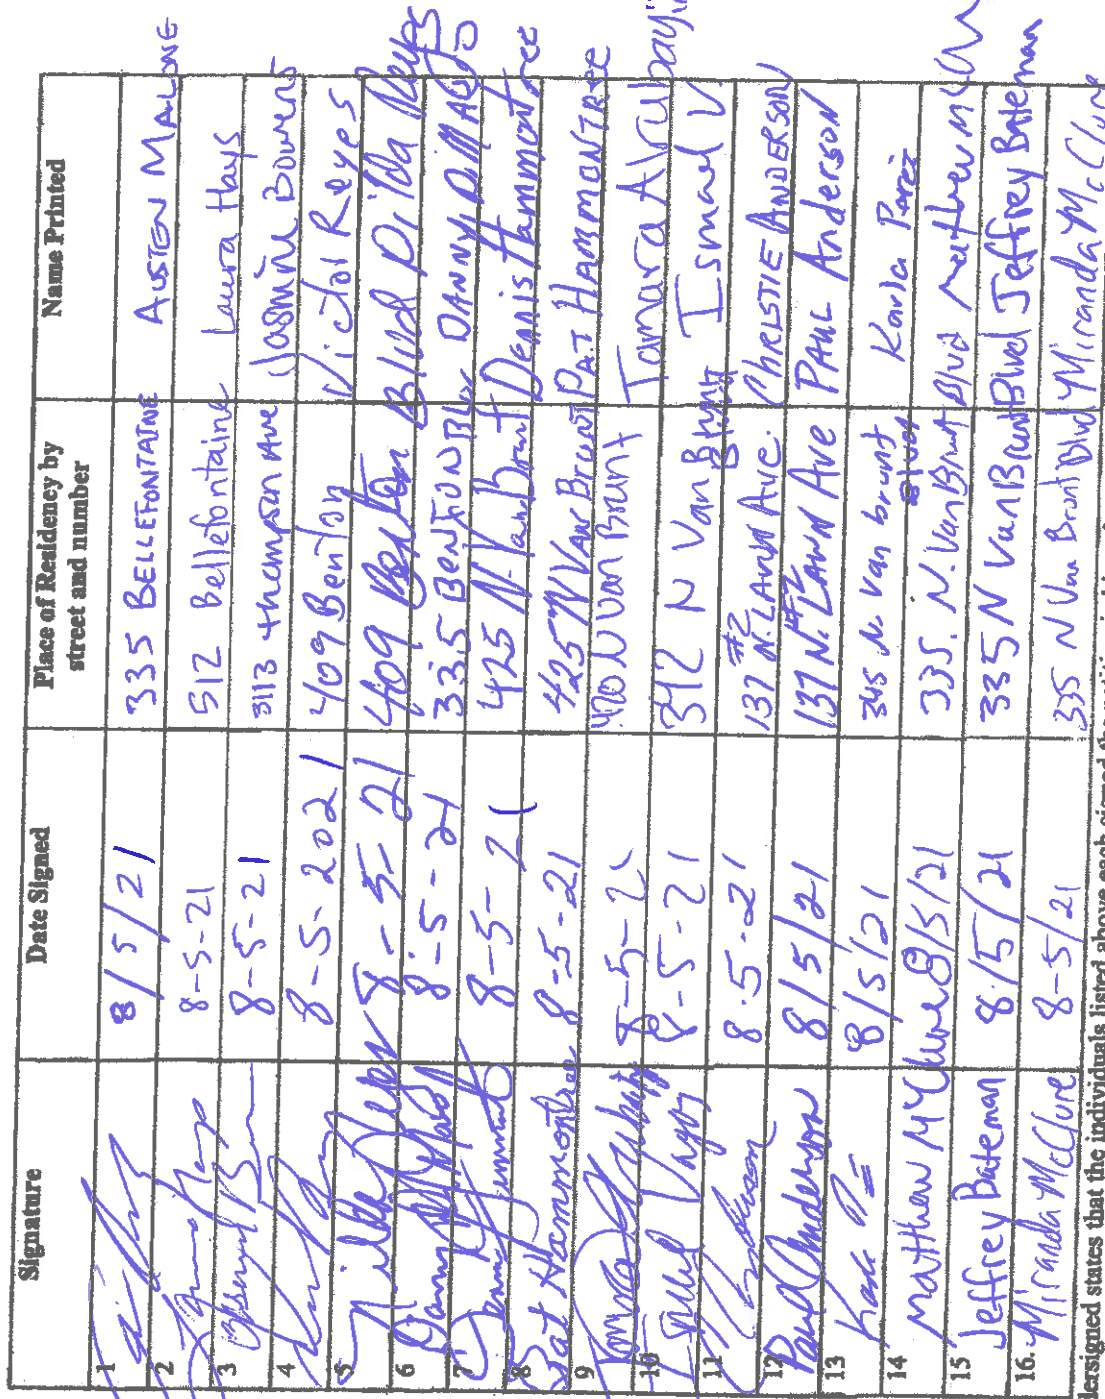 Signature Date Signed Place of Residency by street and number Name Printed
1 8/5/21 335 BELLEFONTAINE AUSTEN MALONE
2 8-5-21 512 Bellefontaine Laura Hays
3 8-5-21 3113 thompson Ave Jasmin Bowens
4 8-5-2021 409 Benton Victor Reyes
5 8-5-21 409 Benton Blvd Dilda Reyes
6 8-5-21 335 BENTON BLV DANNY
7 8-5-21 425 N. Van Brunt Dennis Hammontree
8 Pat Hammontree 8-5-21 425 N Van Brunt PAT HAMMONTREE
9 8-5-21 420 N Van Brunt Tamara
10 8-5-21 342 N Van Brunt Ismael V
11 8-5-21 #2 137 N. LAWN AVE. CHRISTIE ANDERSON
12 Paul Anderson 8/5/21 137 N. #2 LAWN Ave PAUL Anderson
13 8/5/21 345 N. Van brunt Blvd Karla Perez
14 Matthew McClure 8/5/21 335. N. Van Brunt Blvd Matthew
15 Jeffrey Bateman 8/5/21 335 N Van Brunt Blvd Jeffrey Bateman
16. Miranda McClure 8-5/21 335 N Van Brunt Blvd Miranda McClure
dersigned states that the individuals listed above each signed the petition